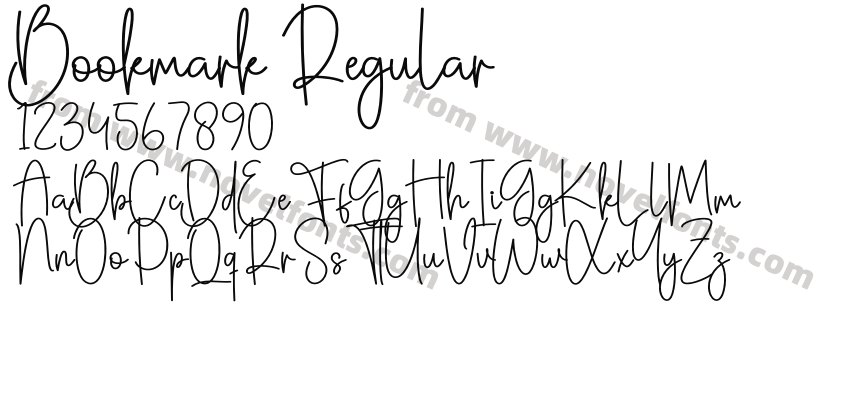 Bookmark Regular
1234567890
AaBbCaDdEe FfGgHhIiGgKkLlMm
NnOoPpQqRrSsTtUuVvWwXxYyZz
from www.novelfonts.com
from www.novelfonts.com